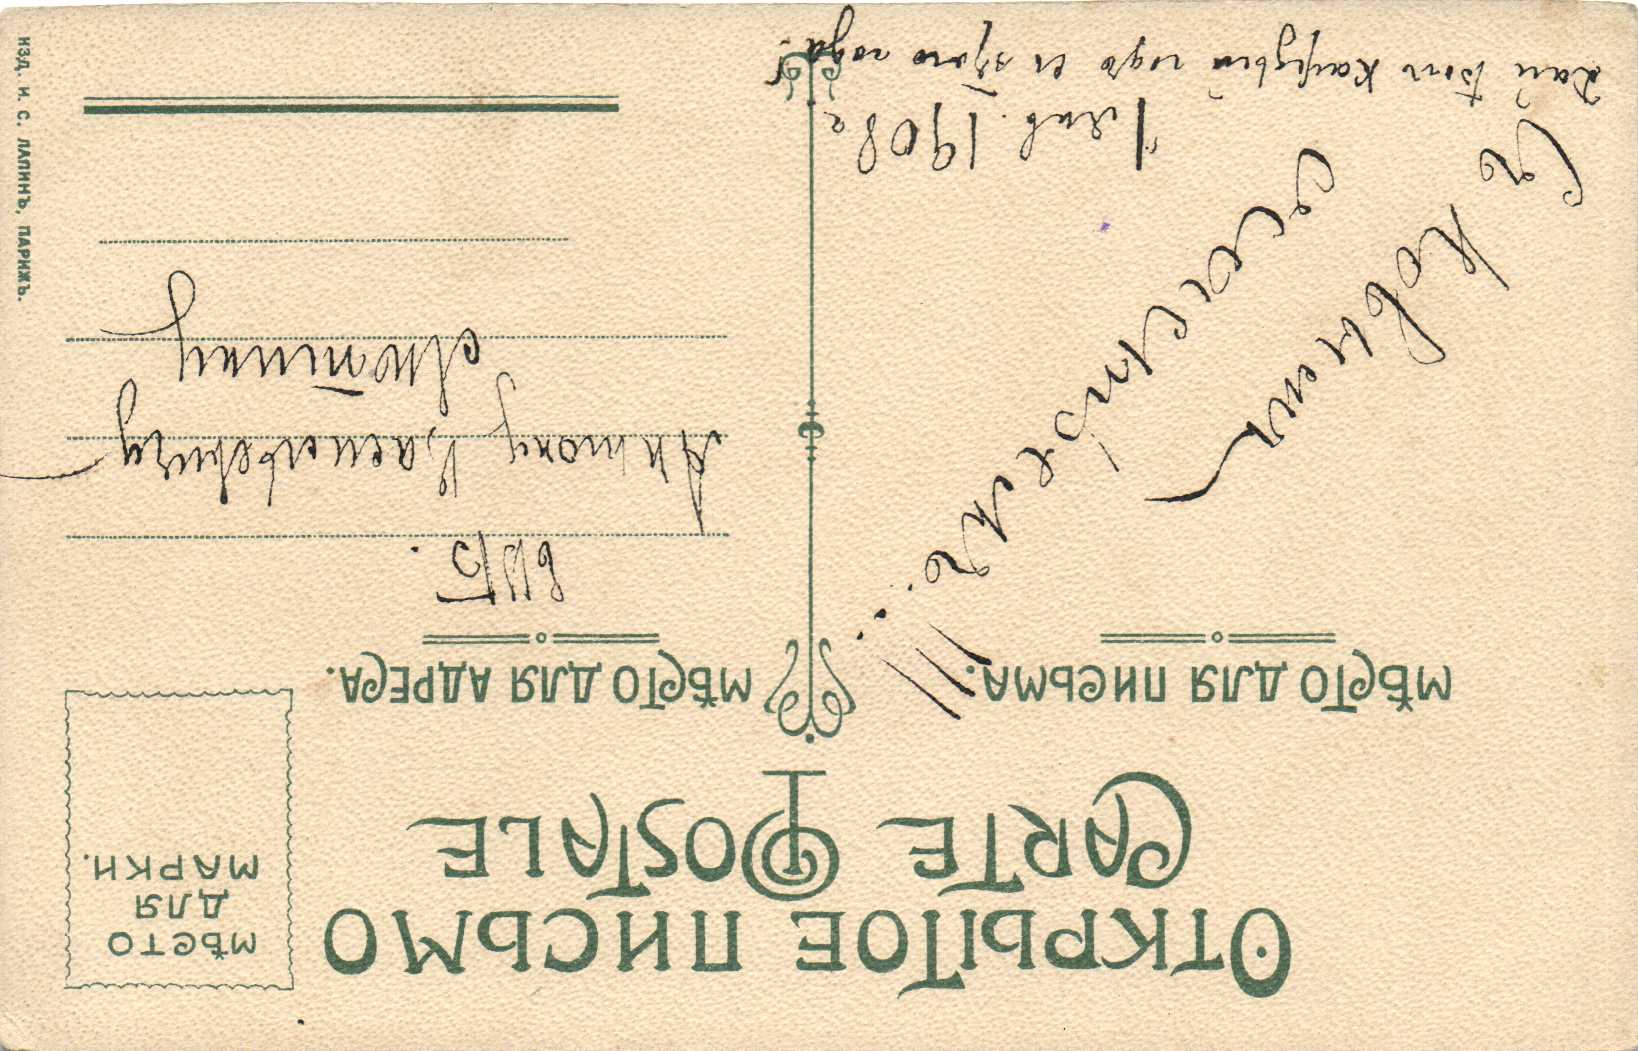 ОТКРЫТОЕ ПИСЬМО
CARTE POSTALE
МѢСТО
ДЛЯ
МАРКИ.
МѢСТО ДЛЯ ПИСЬМА.
МѢСТО ДЛЯ АДРЕСА.
Съ Новым
счастьемъ...!!!
1 янв. 1908 г.
Дай Бог каждый годъ этого года.
Антону Васильевичу
ИЗД. И. С. ЛАПИНЪ, ПАРИЖЪ.